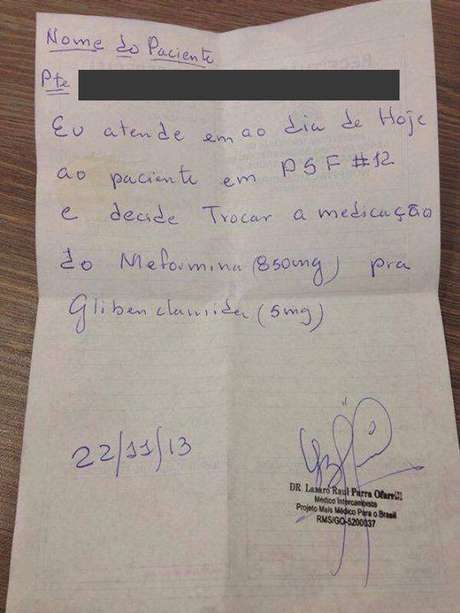 Nome do Paciente
Pte
Eu atende em ao dia de Hoje
ao paciente em PSF #12
e decide Trocar a medicação
do Meformina (850mg) pra
Glibenclamida (5mg)
22/11/13
DR. Lazaro Raul Parra Ofarrill
Médico Intercambista
Projeto Mais Médico Para o Brasil
RMS/GO-5200037